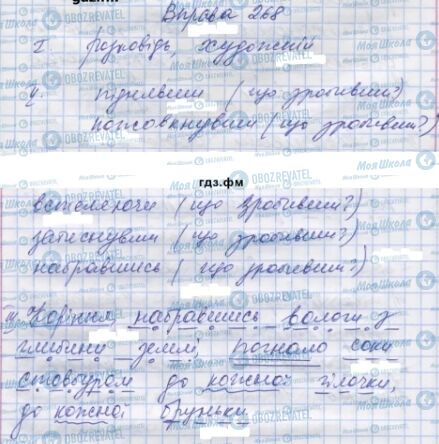 Вправа 268
I. Розповідь художній
II. піднявши (що зробивши?)
пожовкнувши (що зробивши?)
гдз.фм
встеляючи (що зробивши?)
затиснувши (що зробивши?)
набравшись (що зробивши?)
III. Коріння набравшись вологи з
глибини землі, погнало соки
стовбуром до кожної гілочки,
до кожної бруньки.